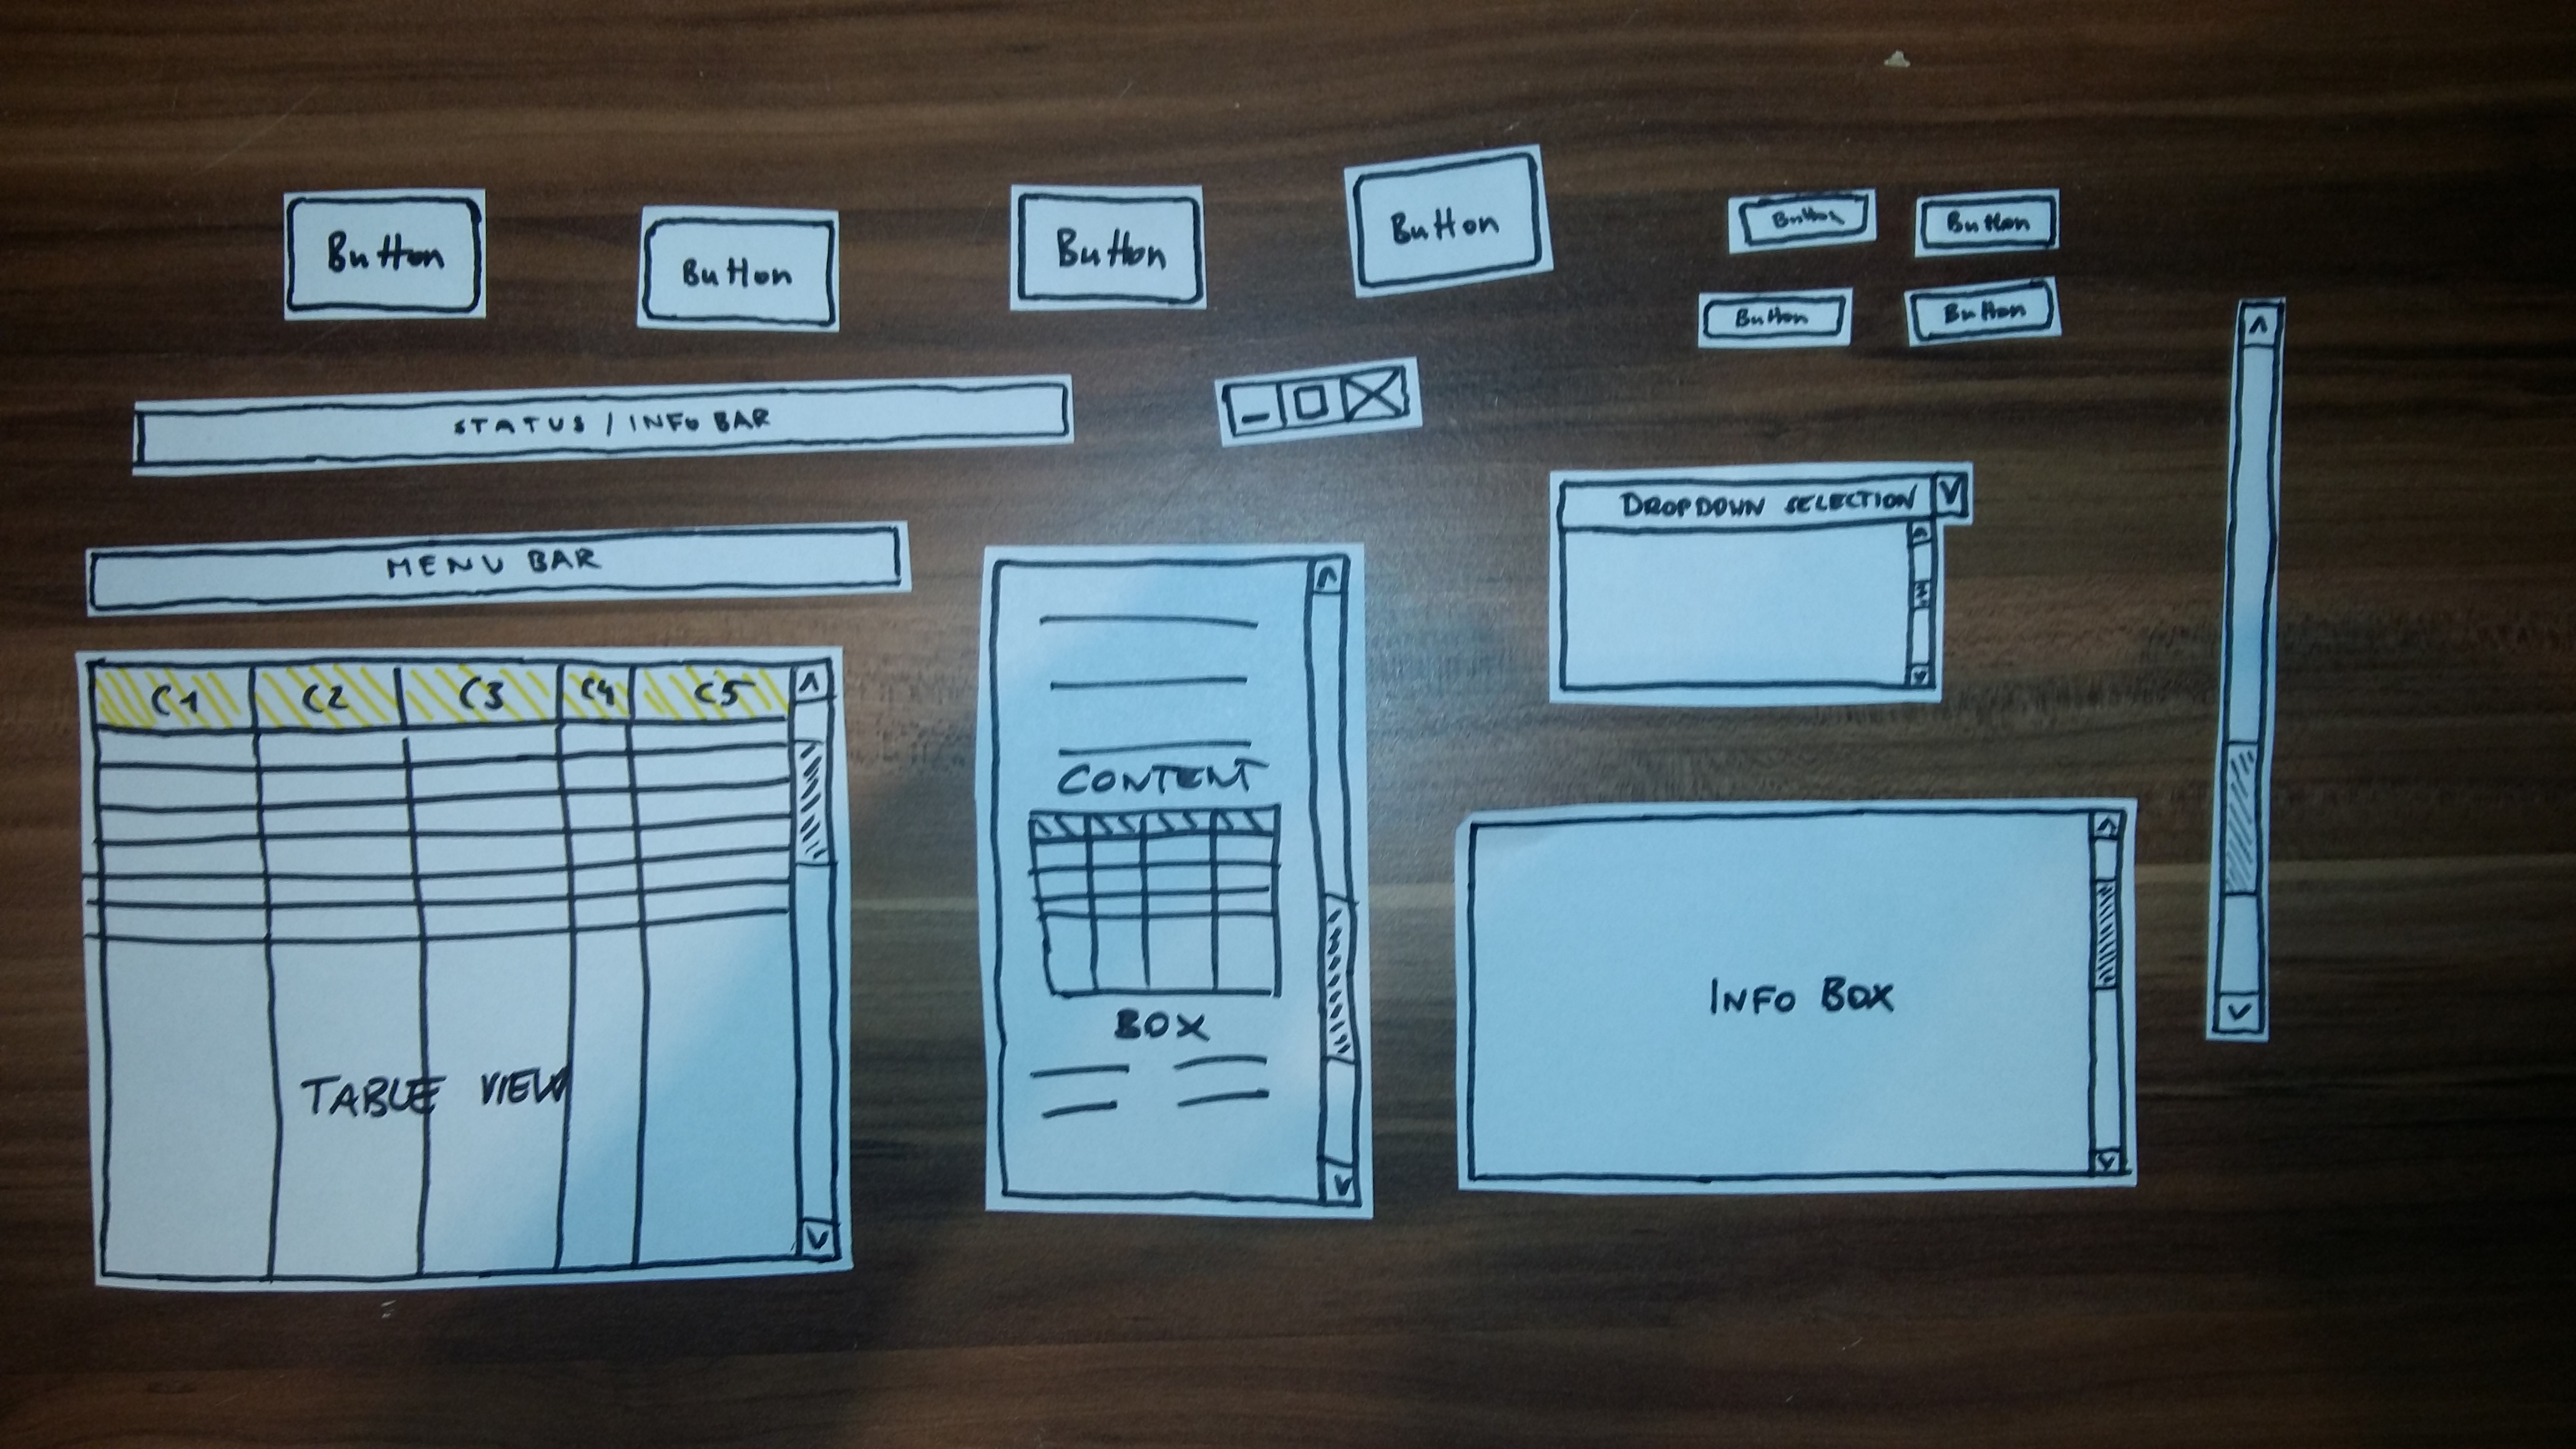 Button
Button
Button
Button
Button
Button
Button
Button
STATUS / INFO BAR
DROPDOWN SELECTION V
MENU BAR
C1 C2 C3 C4 C5
TABLE VIEW
CONTENT
BOX
INFO BOX